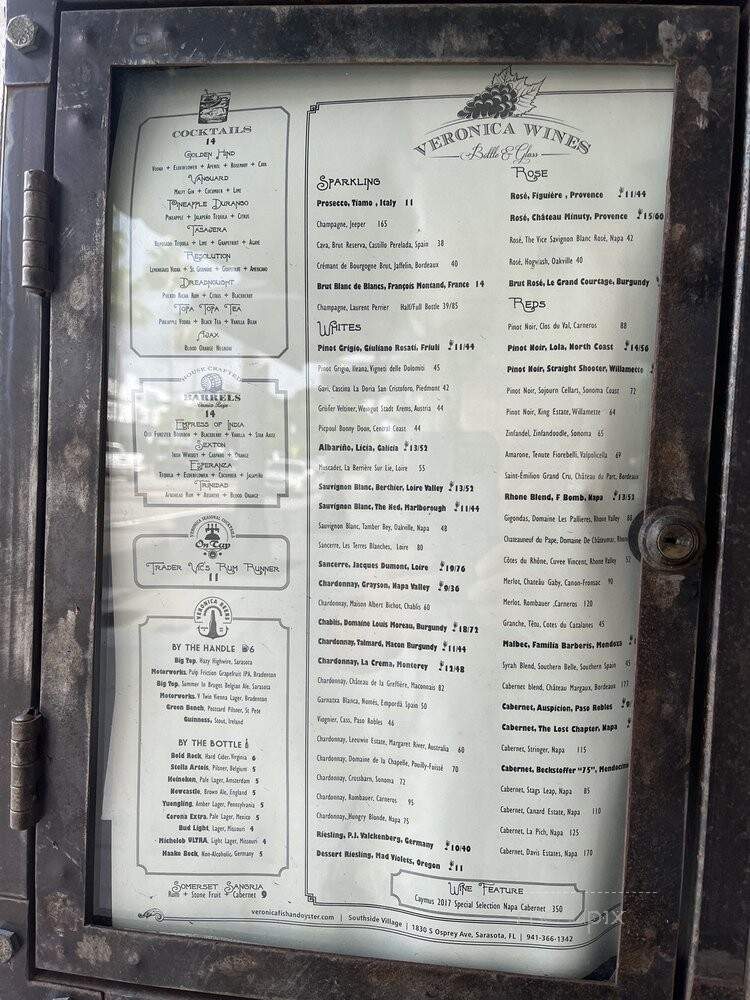 COCKTAILS
14
Golden Hind
Vodka + Elderflower + Aperol + Rosemary + Cava
Vanguard
Malfy Gin + Cucumber + Lime
Pineapple Durango
Pineapple + Jalapeño Tequila + Citrus
Tasajera
Reposado Tequila + Lime + Grapefruit + Agave
Resolution
Lemongrass Vodka + St. Germaine + Grapefruit + Americano
Dreadnought
Puerto Rican Rum + Citrus + Blackberry
Topa Topa Tea
Pineapple Vodka + Black Tea + Vanilla Bean
Ajax
Blood Orange Negroni
HOUSE CRAFTED
BARRELS
14
Empress of India
Old Forester Bourbon + Blackberry + Vanilla + Star Anise
Sexton
Irish Whiskey + Campari + Orange
Esperanza
Tequila + Elderflower + Cucumber + Jalapeño
Trinidad
Aforehead Rum + Absinthe + Blood Orange
VERONICA SEASONAL COCKTAILS
On Tap
Trader Vic's Rum Runner
11
VERONICA BEERS
BY THE HANDLE 6
Big Top, Hazy Highwire, Sarasota
Motorworks, Pulp Friction Grapefruit IPA, Bradenton
Big Top, Summer In Bruges Belgian Ale, Sarasota
Motorworks, V Twin Vienna Lager, Bradenton
Green Bench, Postcard Pilsner, St Pete
Guinness, Stout, Ireland
BY THE BOTTLE
Bold Rock, Hard Cider, Virginia 6
Stella Artois, Pilsner, Belgium 5
Heineken, Pale Lager, Amsterdam 5
Newcastle, Brown Ale, England 5
Yuengling, Amber Lager, Pennsylvania 5
Corona Extra, Pale Lager, Mexico 5
Bud Light, Lager, Missouri 4
Michelob ULTRA, Light Lager, Missouri 4
Haake Beck, Non-Alcoholic, Germany 5
Somerset Sangria
Rum + Stone Fruit + Cabernet 9
VERONICA WINES
Bottle & Glass
Sparkling
Prosecco, Tiamo , Italy 11
Champagne, Jeeper 165
Cava, Brut Reserva, Castillo Perelada, Spain 38
Crémant de Bourgogne Brut, Jaffelin, Bordeaux 40
Brut Blanc de Blancs, François Montand, France 14
Champagne, Laurent Perrier Half/Full Bottle 39/85
Whites
Pinot Grigio, Giuliano Rosati, Friuli 11/44
Pinot Grigio, Ileana, Vigneti delle Dolomiti 45
Gavi, Cascina La Doria San Cristoforo, Piedmont 42
Grüner Veltiner, Weingut Stadt Krems, Austria 44
Picpoul Bonny Doon, Central Coast 44
Albariño, Licia, Galicia 13/52
Muscadet, La Berrière Sur Lie, Loire 55
Sauvignon Blanc, Berthier, Loire Valley 13/52
Sauvignon Blanc, The Ned, Marlborough 11/44
Sauvignon Blanc, Tamber Bey, Oakville, Napa 48
Sancerre, Les Terres Blanches, Loire 80
Sancerre, Jacques Dumont, Loire 19/76
Chardonnay, Grayson, Napa Valley 9/36
Chardonnay, Maison Albert Bichot, Chablis 60
Chablis, Domaine Louis Moreau, Burgundy 18/72
Chardonnay, Talmard, Macon Burgundy 11/44
Chardonnay, La Crema, Monterey 12/48
Chardonnay, Château de la Greffière, Maconnais 82
Garnatxa Blanca, Homés, Empordà Spain 50
Viognier, Cass, Paso Robles 46
Chardonnay, Leeuwin Estate, Margaret River, Australia 60
Chardonnay, Domaine de la Chapelle, Pouilly-Fuissé 70
Chardonnay, Crossbarn, Sonoma 72
Chardonnay, Rombauer, Carneros 95
Chardonnay,,Hungry Blonde, Napa 75
Riesling, P.J. Valckenberg, Germany 10/40
Dessert Riesling, Mad Violets, Oregon 11
Rose
Rosé, Figuière , Provence 11/44
Rosé, Château Minuty, Provence 15/60
Rosé, The Vice Savignon Blanc Rosé, Napa 42
Rosé, Hogwash, Oakville 40
Brut Rosé, Le Grand Courtage, Burgundy
Reds
Pinot Noir, Clos du Val, Carneros 88
Pinot Noir, Lola, North Coast 14/56
Pinot Noir, Straight Shooter, Willamette
Pinot Noir, Sojourn Cellars, Sonoma Coast 72
Pinot Noir, King Estate, Willamette 64
Zinfandel, Zinfandoodle, Sonoma 65
Amarone, Tenute Fiorebelli, Valpolicella 69
Saint-Émilion Grand Cru, Château du Parc, Bordeaux
Rhone Blend, F Bomb, Napa 13/52
Gigondas, Domaine Les Pallieres, Rhone Valley 88
Chateauneuf du Pape, Domaine De Châteaumar, Rhone
Côtes du Rhône, Cuvee Vincent, Rhone Valley 52
Merlot, Chateau Gaby, Canon-Fronsac 90
Merlot, Rombauer ,Carneros 120
Granche, Tétu, Cotes du Catalanes 45
Malbec, Familia Barberis, Mendoza
Syrah Blend, Southern Belle, Southern Spain 45
Cabernet blend, Château Margaux, Bordeaux 177
Cabernet, Auspicion, Paso Robles 9/
Cabernet, The Lost Chapter, Napa
Cabernet, Stringer, Napa 115
Cabernet, Beckstoffer "75", Mendocino
Cabernet, Stags Leap, Napa 85
Cabernet, Canard Estate, Napa 110
Cabernet, La Pich, Napa 125
Cabernet, Davis Estates, Napa 170
Wine Feature
Caymus 2017 Special Selection Napa Cabernet 350
veronicafishandoyster.com | Southside Village | 1830 S Osprey Ave, Sarasota, FL | 941-366-1342